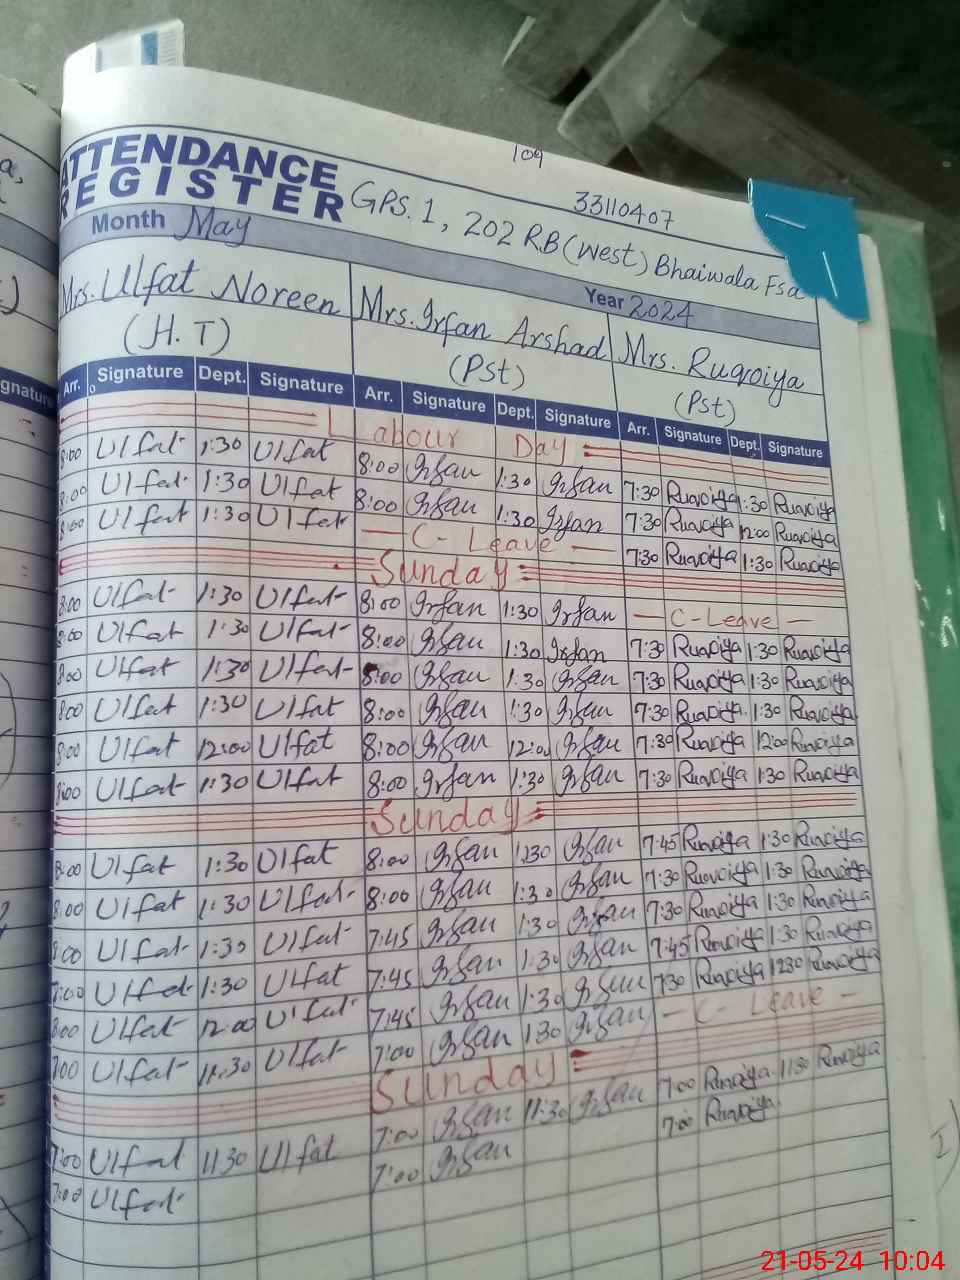 109
ATTENDANCE
REGISTER
GPS. 1, 202 R.B (West) Bhaiwala Fsd
33110407
Month May
Year 2024
Mrs. Ulfat Noreen Mrs. Irfan Arshad Mrs. Ruqoiya
(H.T) (Pst) (Pst)
Arr. Signature Dept. Signature Arr. Signature Dept. Signature Arr. Signature Dept. Signature
Labour Day
8:00 Ulfat 1:30 Ulfat 8:00 Irfan 1:30 Irfan 7:30 Ruqoiya 1:30 Ruqoiya
8:00 Ulfat 1:30 Ulfat 8:00 Irfan 1:30 Irfan 7:30 Ruqoiya 12:00 Ruqoiya
8:00 Ulfat 1:30 Ulfat — C- Leave — 7:30 Ruqoiya 1:30 Ruqoiya
Sunday
8:00 Ulfat 1:30 Ulfat 8:00 Irfan 1:30 Irfan — C-Leave —
8:00 Ulfat 1:30 Ulfat 8:00 Irfan 1:30 Irfan 7:30 Ruqoiya 1:30 Ruqoiya
8:00 Ulfat 1:30 Ulfat 8:00 Irfan 1:30 Irfan 7:30 Ruqoiya 1:30 Ruqoiya
8:00 Ulfat 1:30 Ulfat 8:00 Irfan 1:30 Irfan 7:30 Ruqoiya 1:30 Ruqoiya
8:00 Ulfat 12:00 Ulfat 8:00 Irfan 12:00 Irfan 7:30 Ruqoiya 12:00 Ruqoiya
8:00 Ulfat 1:30 Ulfat 8:00 Irfan 1:30 Irfan 7:30 Ruqoiya 1:30 Ruqoiya
Sunday
8:00 Ulfat 1:30 Ulfat 8:00 Irfan 1:30 Irfan 7:45 Ruqoiya 1:30 Ruqoiya
8:00 Ulfat 1:30 Ulfat 8:00 Irfan 1:30 Irfan 7:30 Ruqoiya 1:30 Ruqoiya
8:00 Ulfat 1:30 Ulfat 7:45 Irfan 1:30 Irfan 7:30 Ruqoiya 1:30 Ruqoiya
Ulfat 1:30 Ulfat 7:45 Irfan 1:30 Irfan 7:45 Ruqoiya 1:30 Ruqoiya
8:00 Ulfat 12:00 Ulfat 7:45 Irfan 1:30 Irfan 7:30 Ruqoiya 1230 Ruqoiya
7:00 Ulfat 11:30 Ulfat 7:00 Irfan 1:30 Irfan — C- Leave —
Sunday
7:00 Ulfat 11:30 Ulfat 7:00 Irfan 11:30 Irfan 7:00 Ruqoiya 11:30 Ruqoiya
7:00 Ulfat 7:00 Irfan 7:00 Ruqoiya
21-05-24 10:04